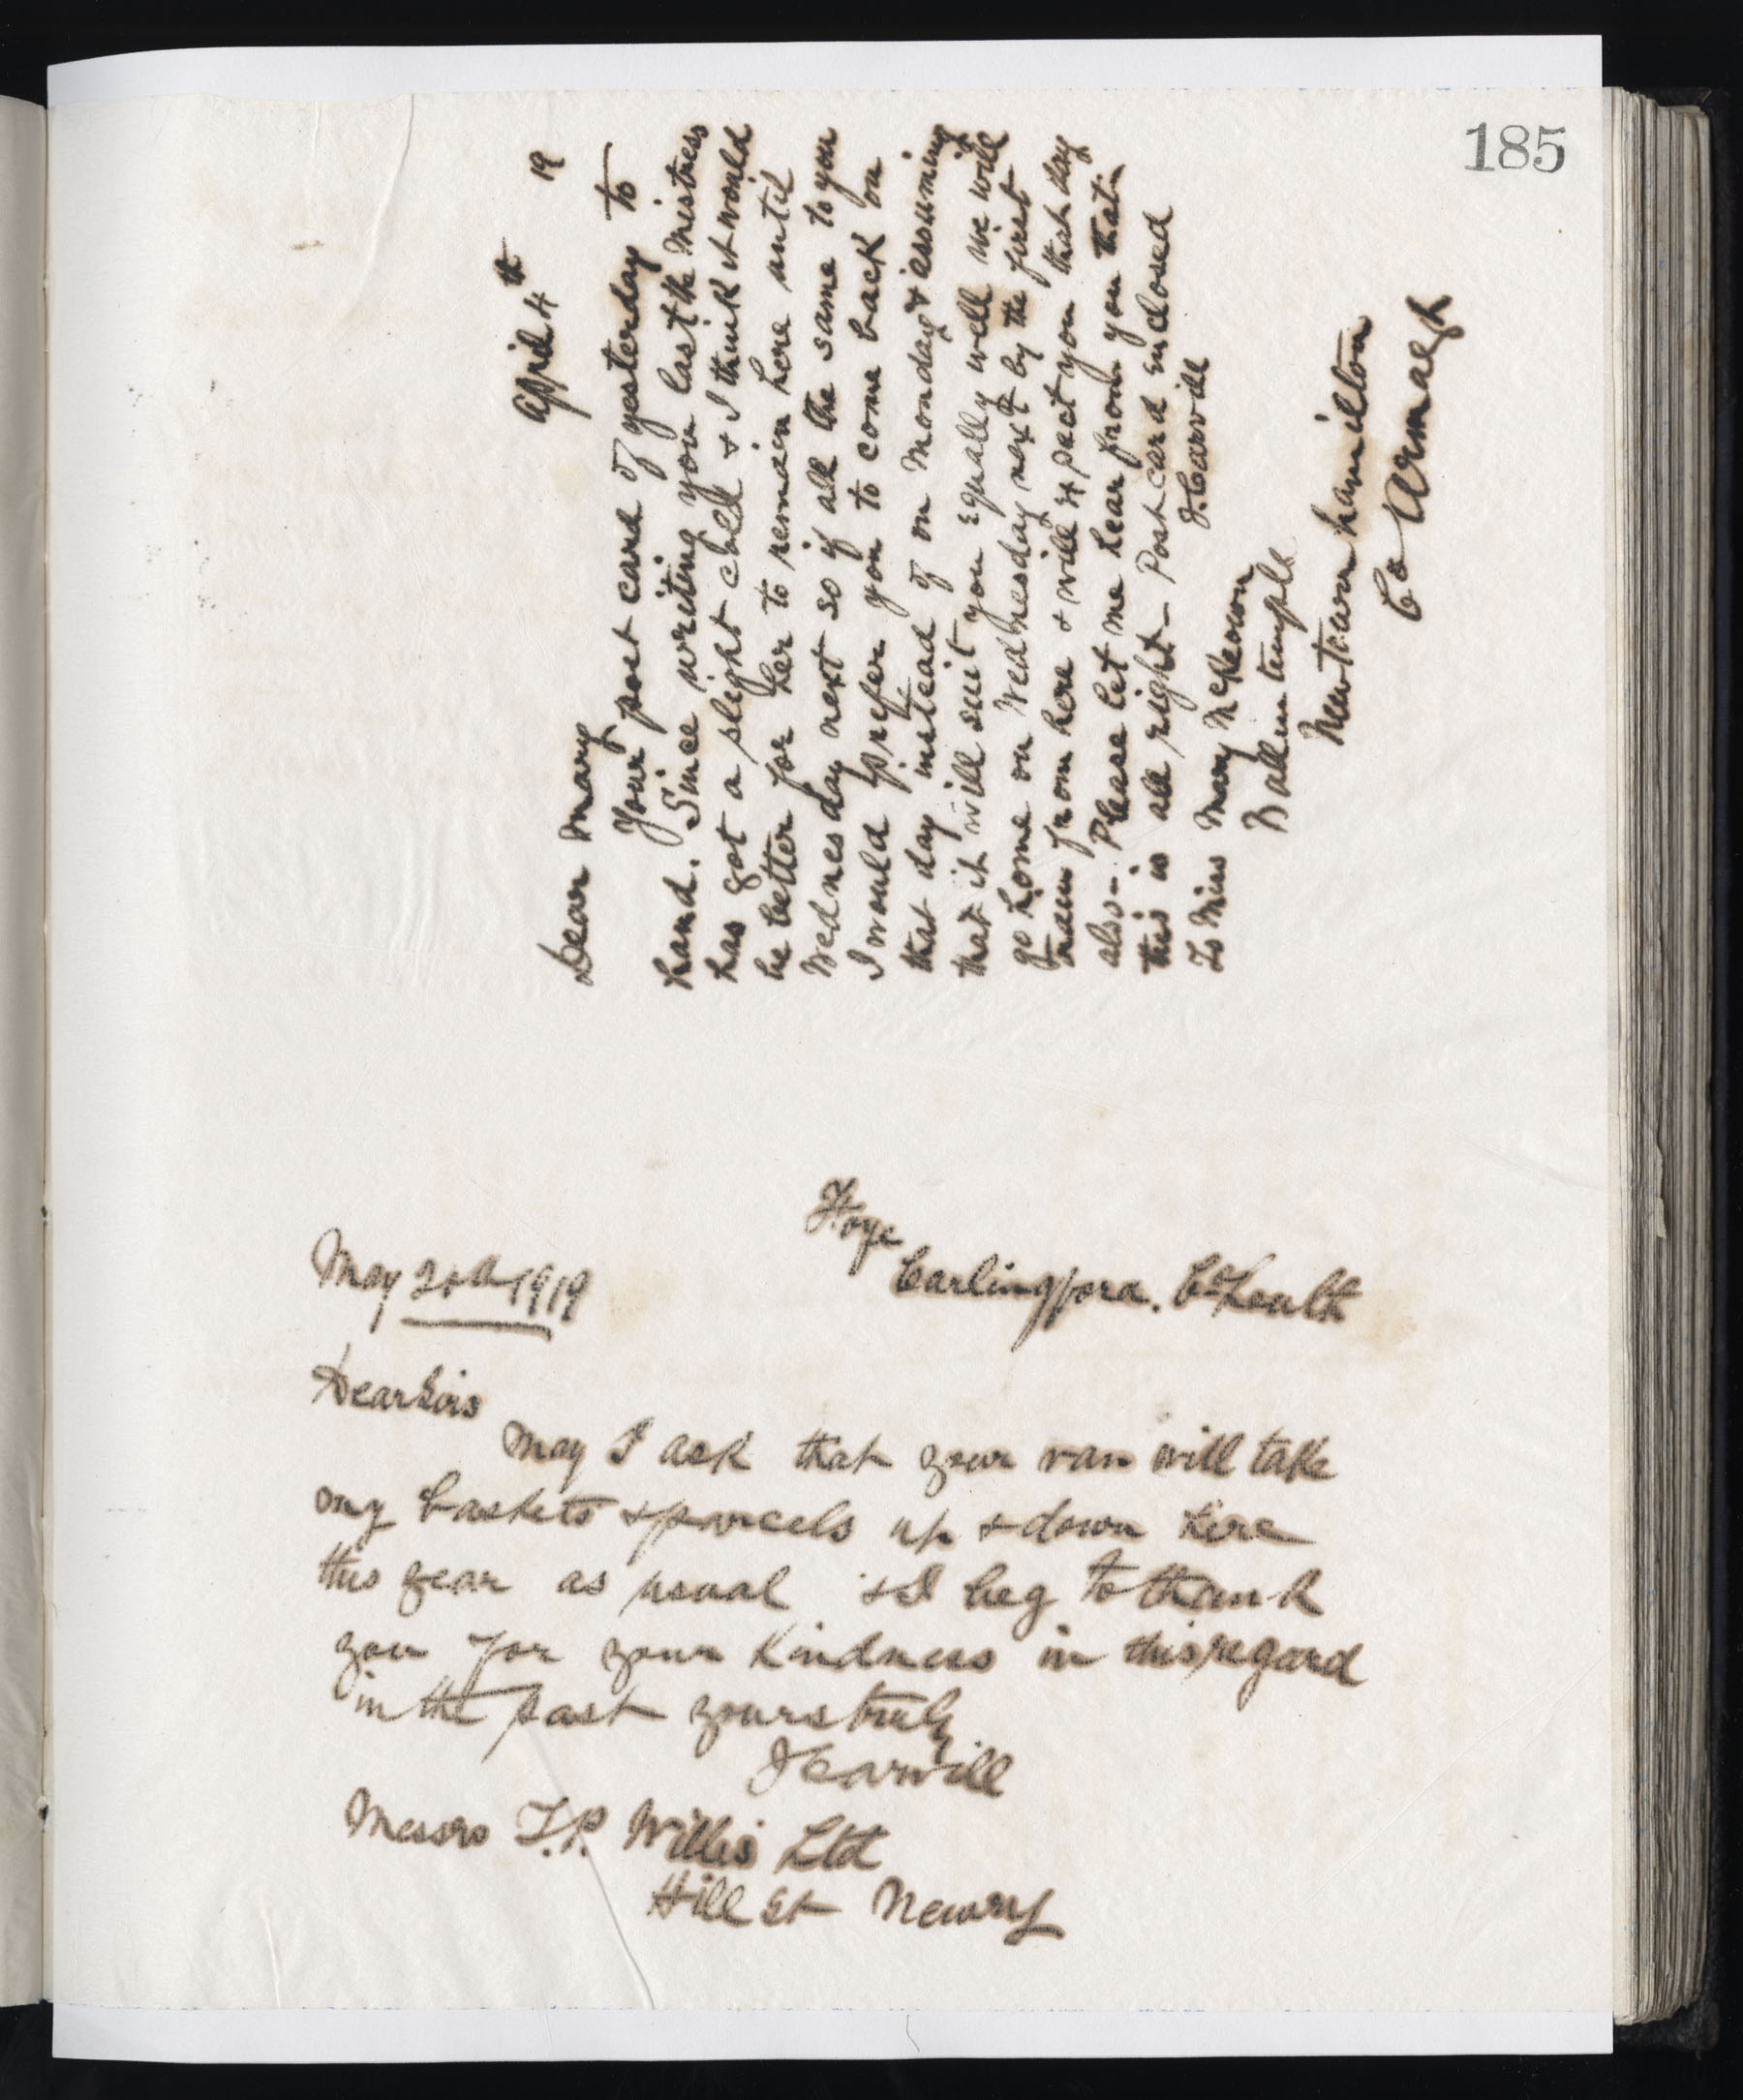 185
April 4th 19
Dear Mary
Your post card of yesterday to
hand. Since writing you last the Mistress
has got a slight cold & I think it would
be better for her to remain here until
Wednesday next so if all the same to you
I would prefer you to come back on
that day instead of on Monday & assuming
that it will suit you Equally well we will
go home on Wednesday next by the first
train from here & will expect you that day
also - Please let me hear from you that
this is all right - Post card enclosed
J. Carvill
To Miss Mary McKeown
Ballintemple
Newtownhamilton
Co Armagh
May 20th 1919
Carlingford. Co Louth
Dear Sirs
May I ask that your van will take
my baskets & parcels up & down here
this year as usual & I beg to thank
you for your kindness in this regard
in the past yours truly
J Carvill
Messrs T.P. Willis Ltd
Hill St Newry